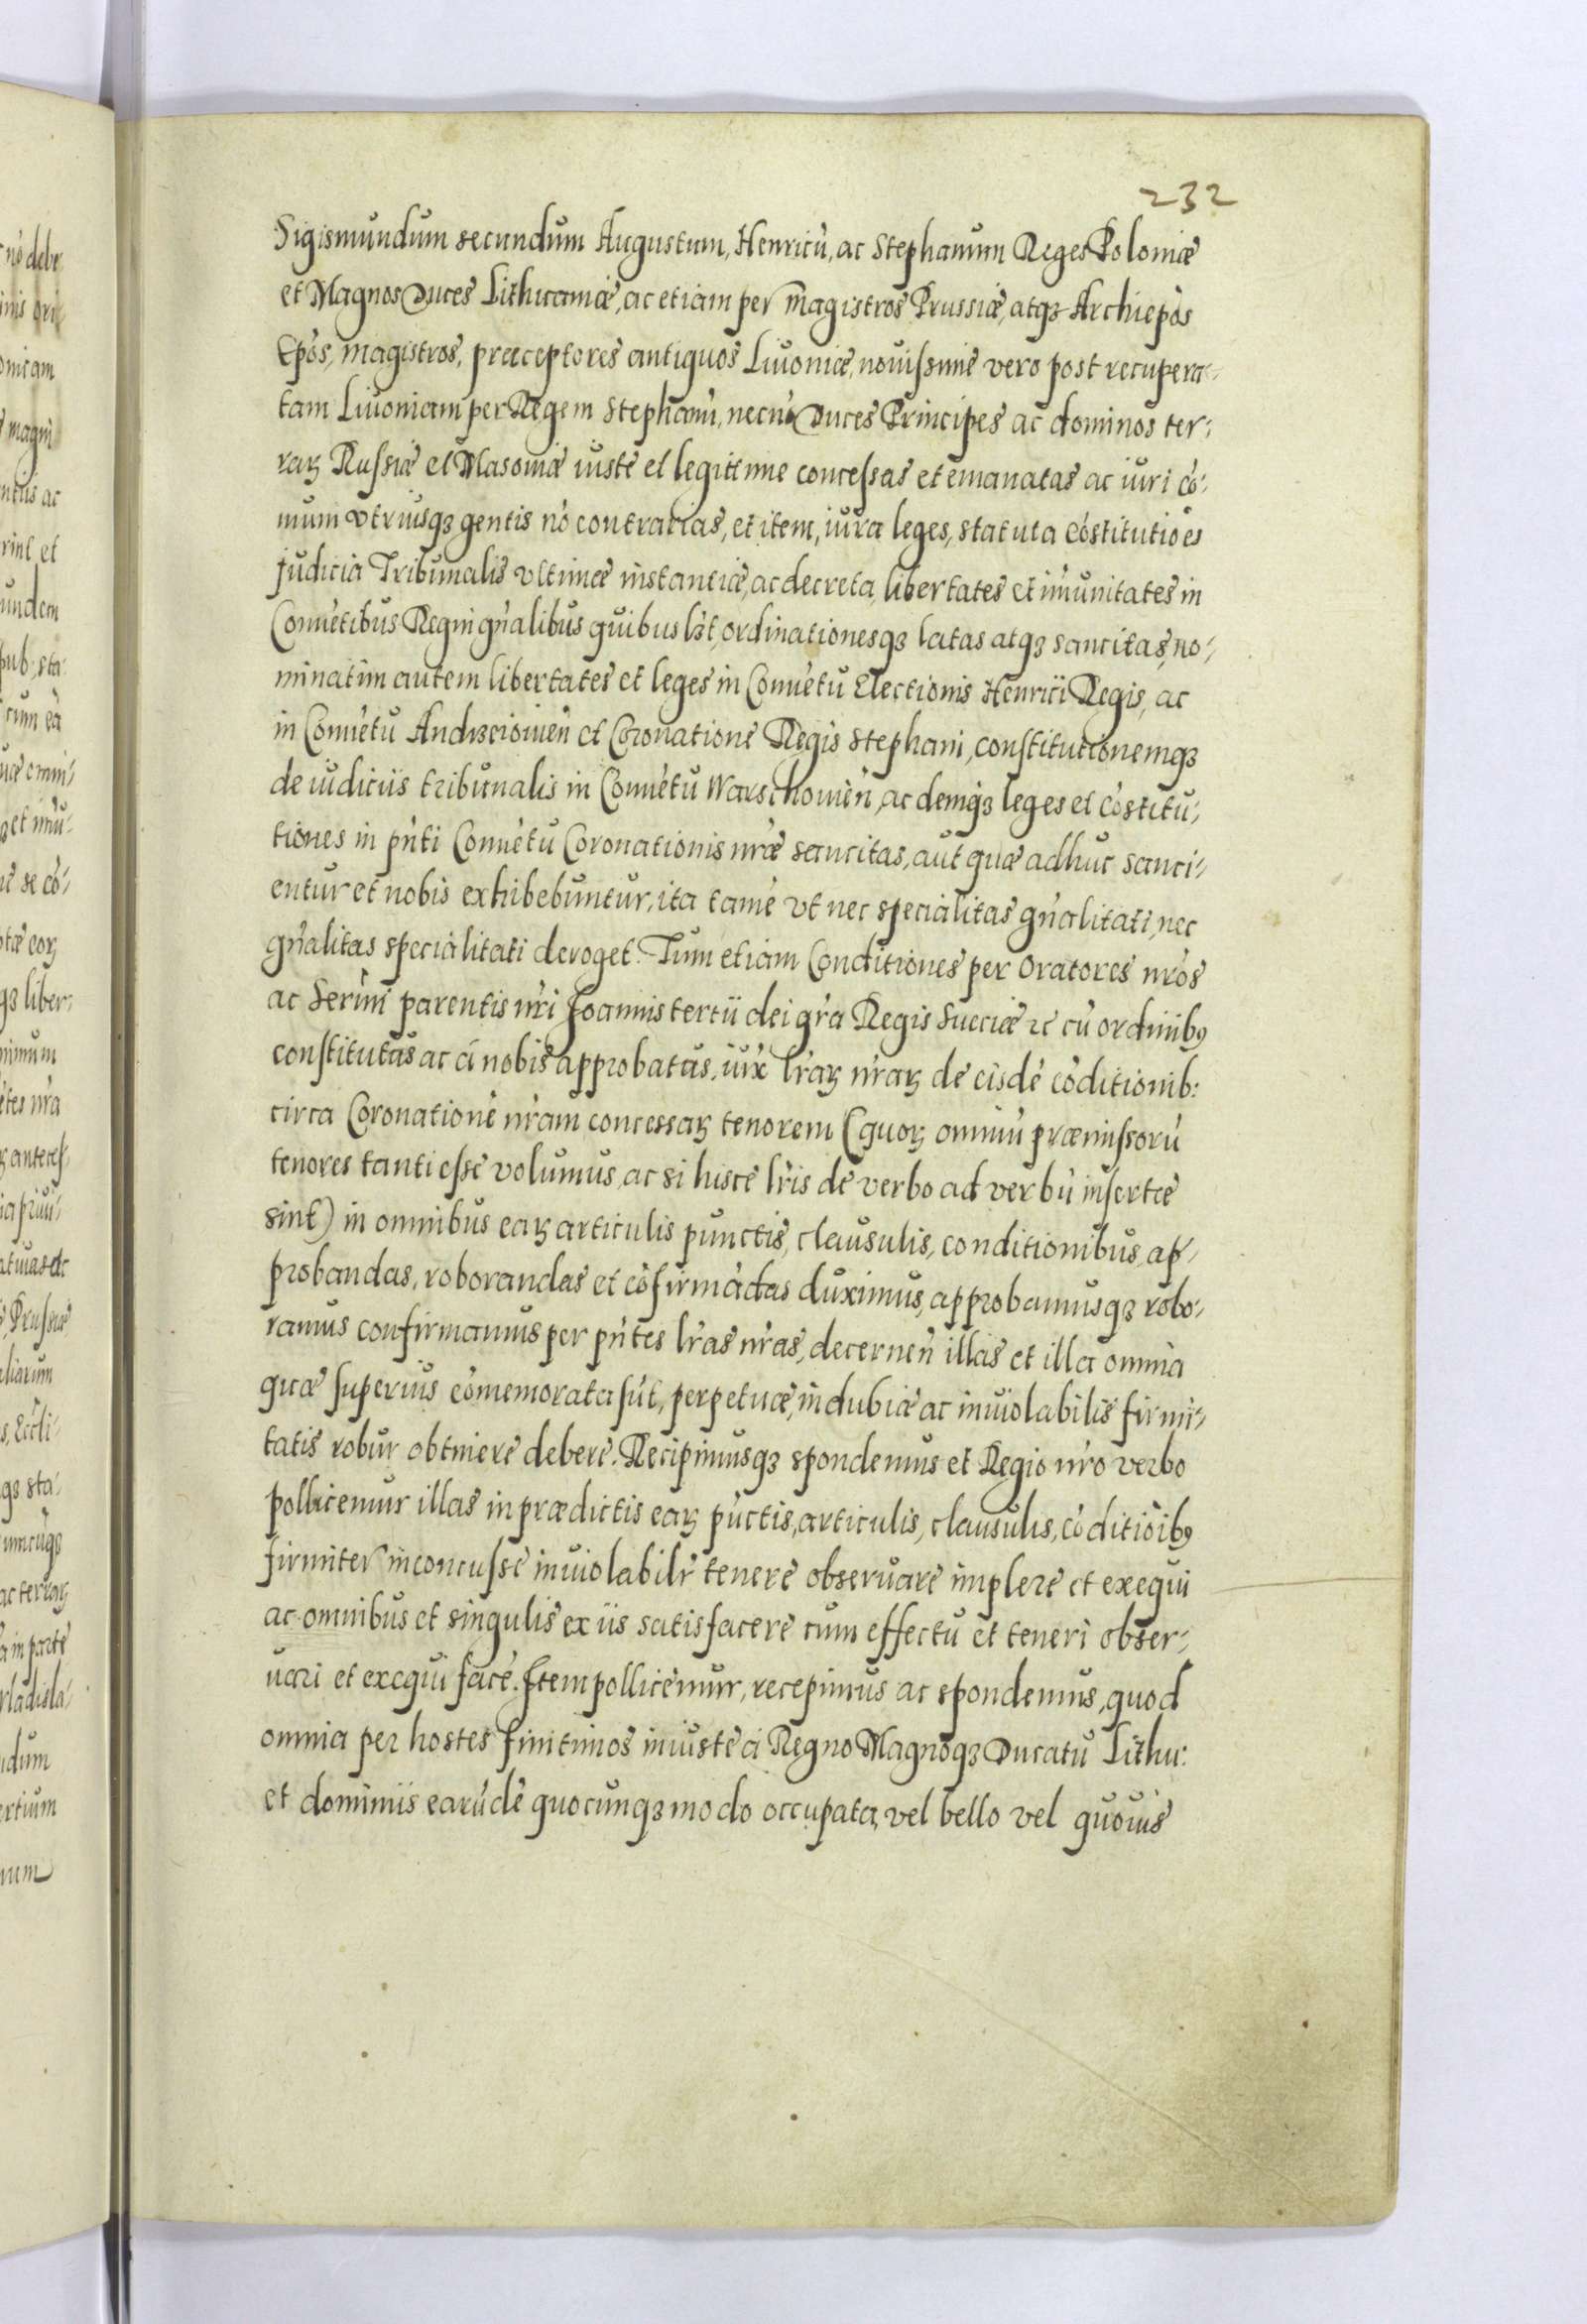 232
Sigismundum secundum Augustum, Henricū, ac Stephanum Reges Poloniæ
et Magnos Duces Lithuaniæ, ac etiam per magistros Prussiæ, atqꝫ Archiepōs
Epōs, magistros, præceptores antiquos Liuoniæ, nouissime vero post recupera-
tam Liuoniam per Regem Stephanū, necnō Duces Principes ac dominos ter-
raꝝ Russiæ et Masoviæ iuste et legitime concessas et emanatas ac iuri cō-
muni vtriusqꝫ gentis nō contrarias, et item, iura leges, statuta cōstitutiōes
Judicia Tribunalis vltimæ instantiæ, ac decreta, libertates et imūnitates in
Conuētibus Regni gn̄alibus quibuslꝫt, ordinationesqꝫ latas atqꝫ sancitas, no-
minatim autem libertates et leges in Conuētu Electionis Henrici Regis, ac
in Conuētu Andrzeiouien̄ et Coronatione Regis Stephani, constitutionemqꝫ
de iudiciis tribunalis in Conuētu Warschouien̄, ac deniqꝫ leges et cōstitu-
tiones in pn̄ti Conuētu Coronationis nr̄æ sancitas, aut quæ adhuc sanci-
entur et nobis exhibebuntur, ita tamē vt nec specialitas gn̄alitati, nec
gn̄alitas specialitati deroget. Tum etiam Conditiones per Oratores nr̄os
ac Serm̄i parentis nr̄i Joannis tertii dei gr̄a Regis Sueciæ ꝛc cū ordinibꝰ
constitutas ac à nobis approbatas, iux̄ lr̄aꝝ nr̄aꝝ de eisdē cōditionib:
circa Coronationē nr̄am concessaꝝ tenorem (quoꝝ omniū præmissorū
tenores tanti esse volumus, ac si hisce lr̄is de verbo ad verbū insertæ
sint) in omnibus eaꝝ articulis punctis, clausulis, conditionibus, ap-
probandas, roborandas et cōfirmādas duximus, approbamusqꝫ robo-
ramus confirmamus per pn̄tes lr̄as nr̄as, decernen̄ illas et illa omnia
quæ superius cōmemorata sūt, perpetuæ, indubiæ ac inuiolabilis firmi-
tatis robur obtinere debere. Recipimusqꝫ spondemus et Regio nr̄o verbo
pollicemur illas in prædictis eaꝝ pūctis, articulis, clausulis, cōditiōibꝰ
firmiter inconcusse inuiolabilr̄ tenere obseruare implere et exequi
ac omnibus et singulis ex iis satisfacere cum effectu et teneri obser-
uari et exequi facē. Item pollicemur, recepimus ac spondemus, quod
omnia per hostes finitimos iniuste à Regno Magnoqꝫ Ducatu Lithu:
et dominiis earūdē quocunqꝫ modo occupata, vel bello vel quouis